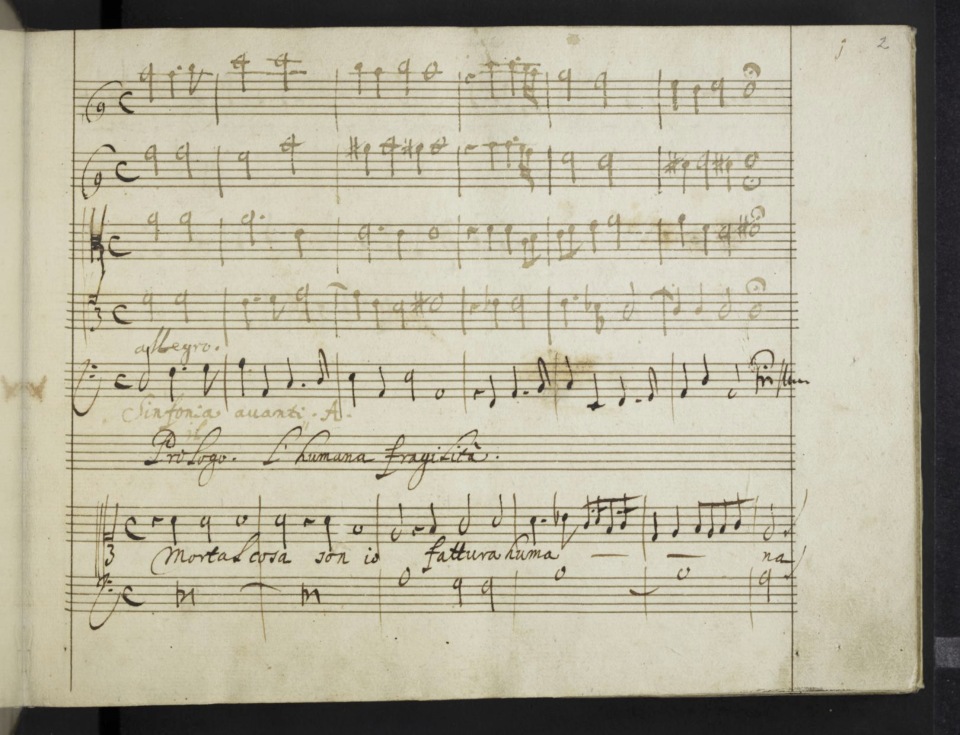 j 2
allegro.
Sinfonia avanti. il
Prologo. L'humana fragilità.
Mortal cosa son io fattura huma na